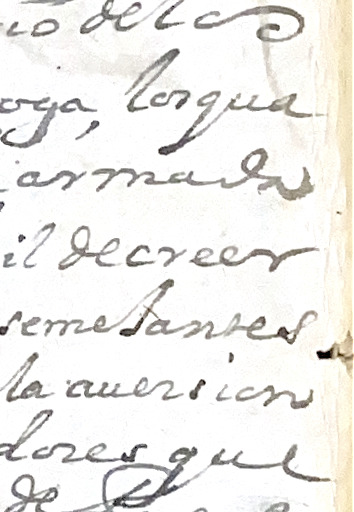 io del
oga, losqua
armada
il decreer
semejantes
la auersion
dores que
de